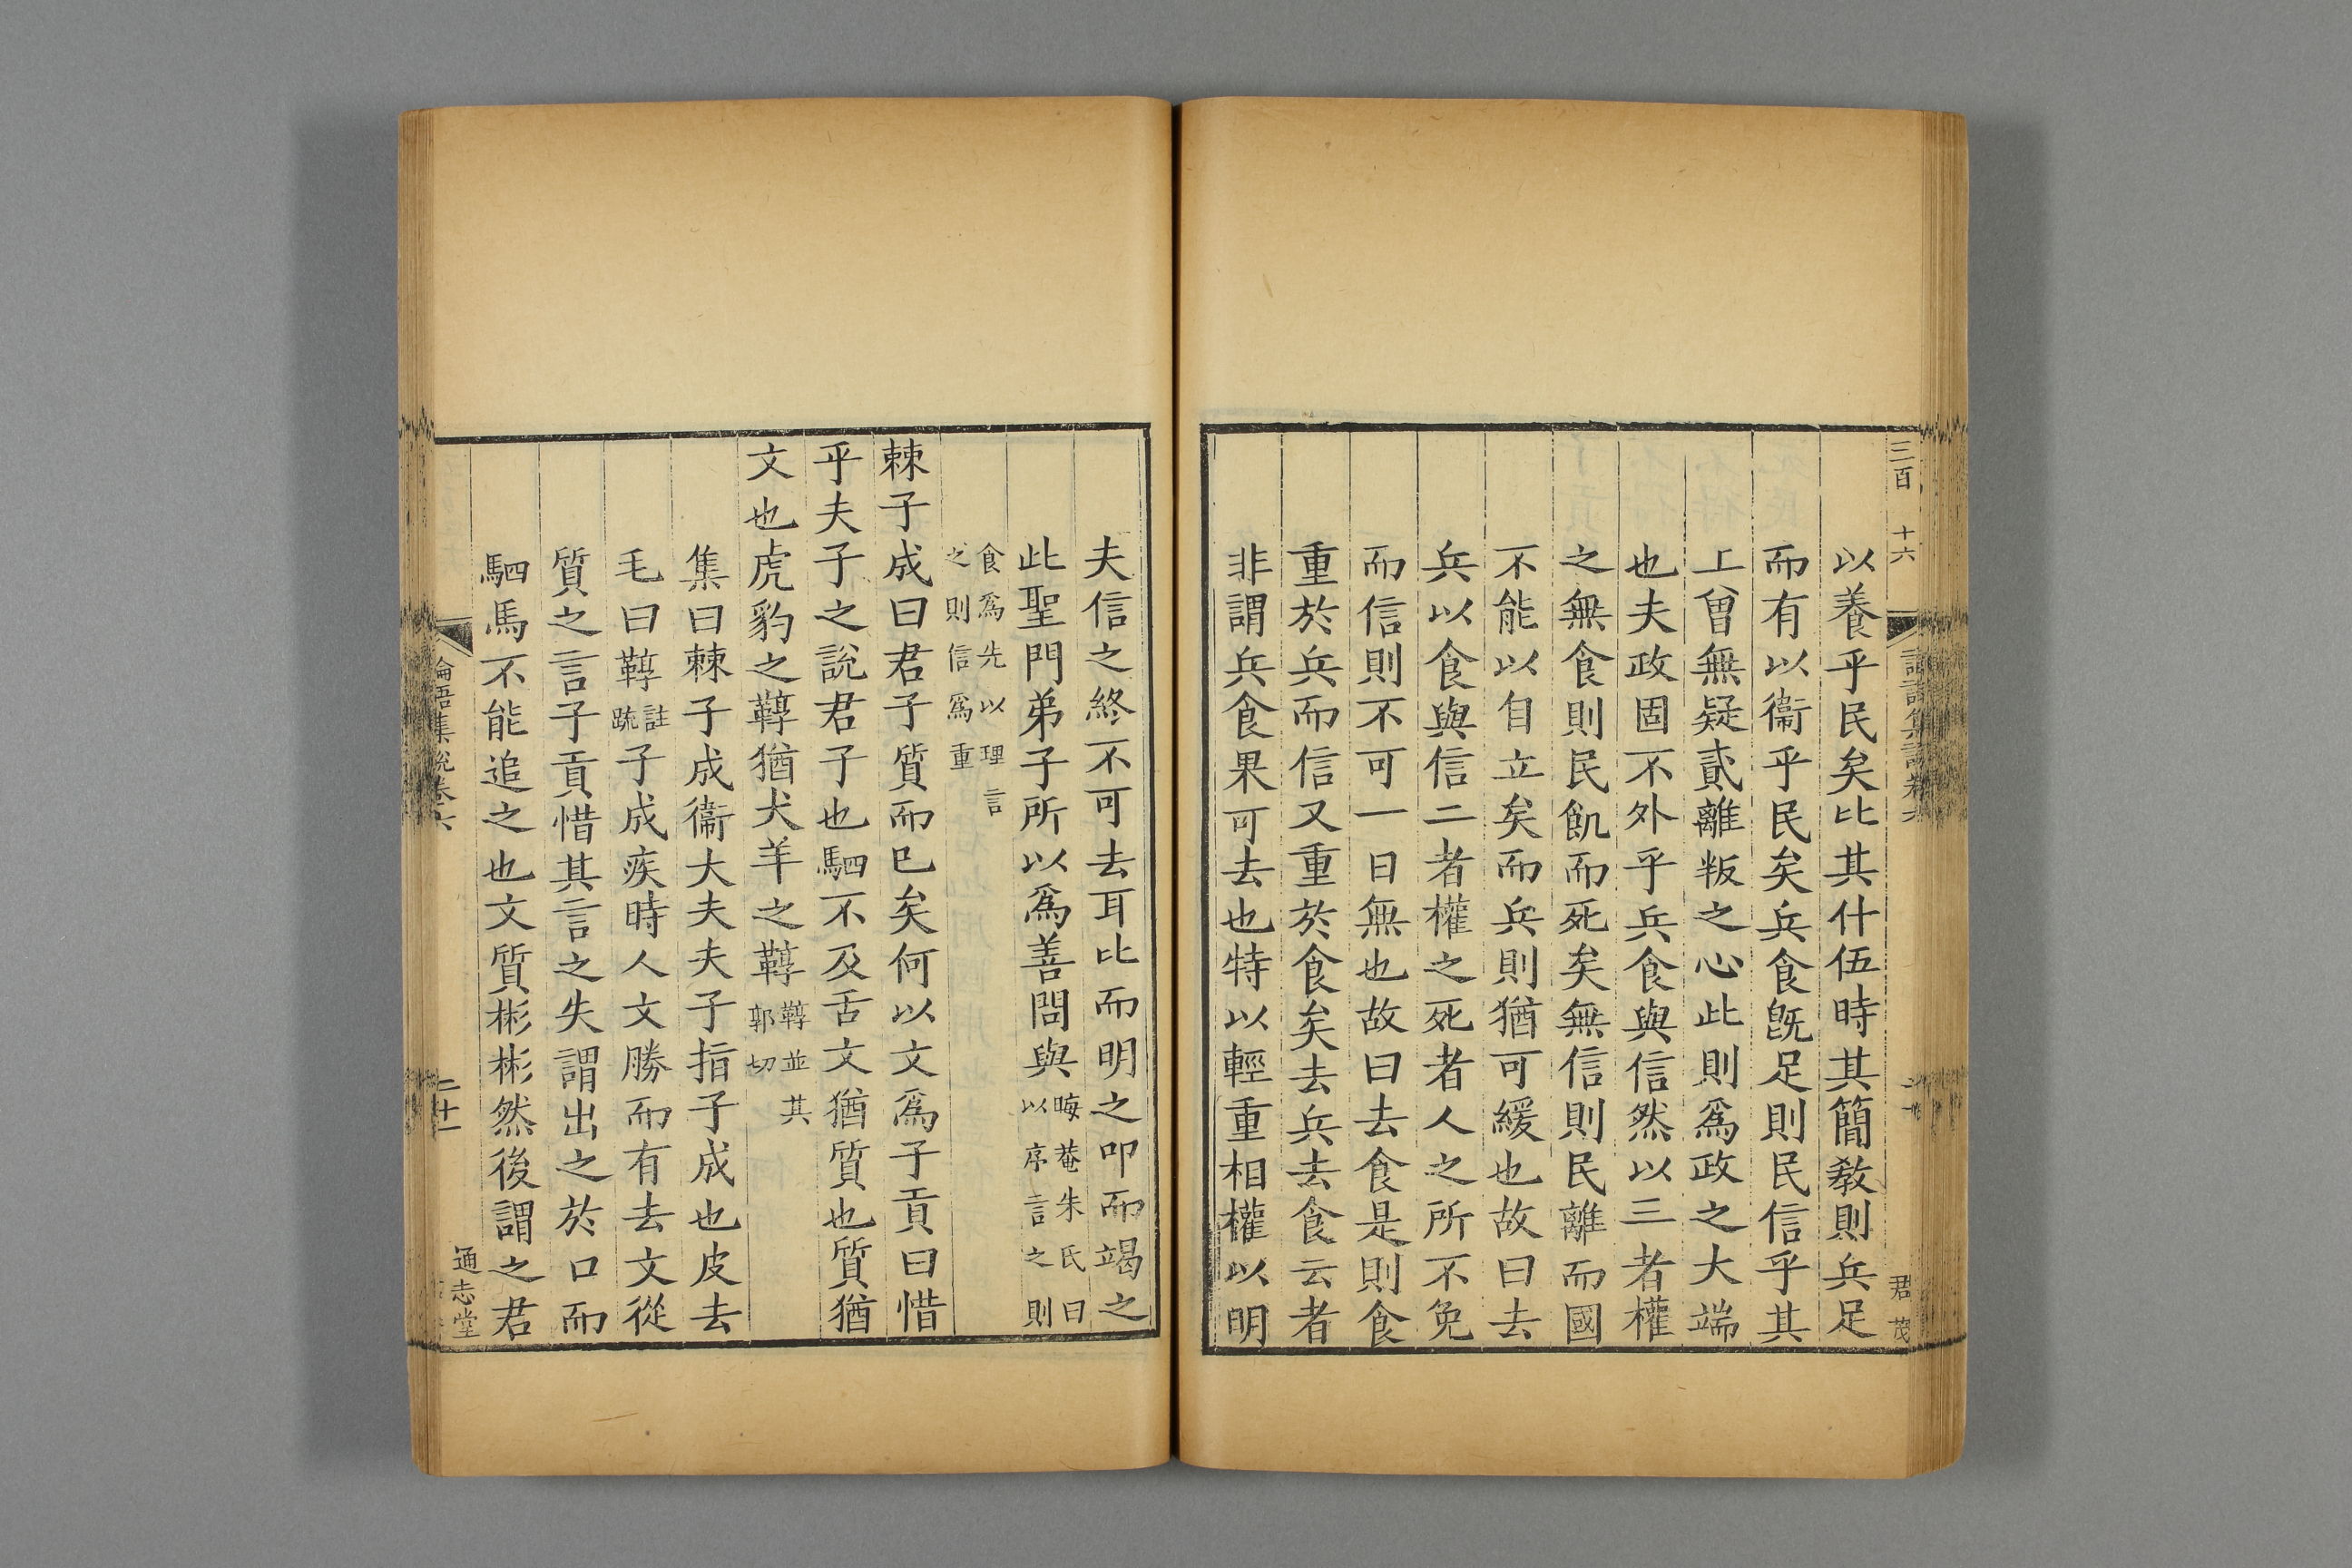 三百 十六
君茂
以養乎民矣比其什伍時其簡敎則兵足
而有以衞乎民矣兵食旣足則民信乎其
上曾無疑貳離叛之心此則爲政之大端
也夫政固不外乎兵食與信然以三者權
之無食則民飢而死矣無信則民離而國
不能以自立矣而兵則猶可緩也故曰去
兵以食與信二者權之死者人之所不免
而信則不可一日無也故曰去食是則食
重於兵而信又重於食矣去兵去食云者
非謂兵食果可去也特以輕重相權以明
夫信之終不可去耳比而明之叩而竭之
此聖門弟子所以爲善問與晦菴朱氏曰以序言之則
食爲先以理言之則信爲重
棘子成曰君子質而已矣何以文爲子貢曰惜
乎夫子之說君子也駟不及舌文猶質也質猶
文也虎豹之鞟猶犬羊之鞟鞟並其郭切
集曰棘子成衞大夫夫子指子成也皮去
毛曰鞟註疏子成疾時人文勝而有去文從
質之言子貢惜其言之失謂出之於口而
駟馬不能追之也文質彬彬然後謂之君
論語集說卷六
二十一
通志堂